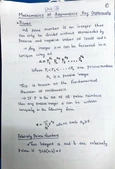 Unit - III
Mathematics of Asymmetric Key Cryptography
* Primes
A prime number is an integer that
can only be divided without remainder by
positive and negative values of itself and 1.
→ Any integer a > 1 can be factored in a
unique way as
where P₁ < P₂ < ... < Pt are prime numbers
is a positive integer
This is known as the fundamental
theorem of arithmetic.
→ If P is the set of all prime numbers
then any positive integer 'a' can be written
uniquely in the following form
Relatively Prime Numbers
Two integers a and b are relatively
prime if gcd(a, b) = 1